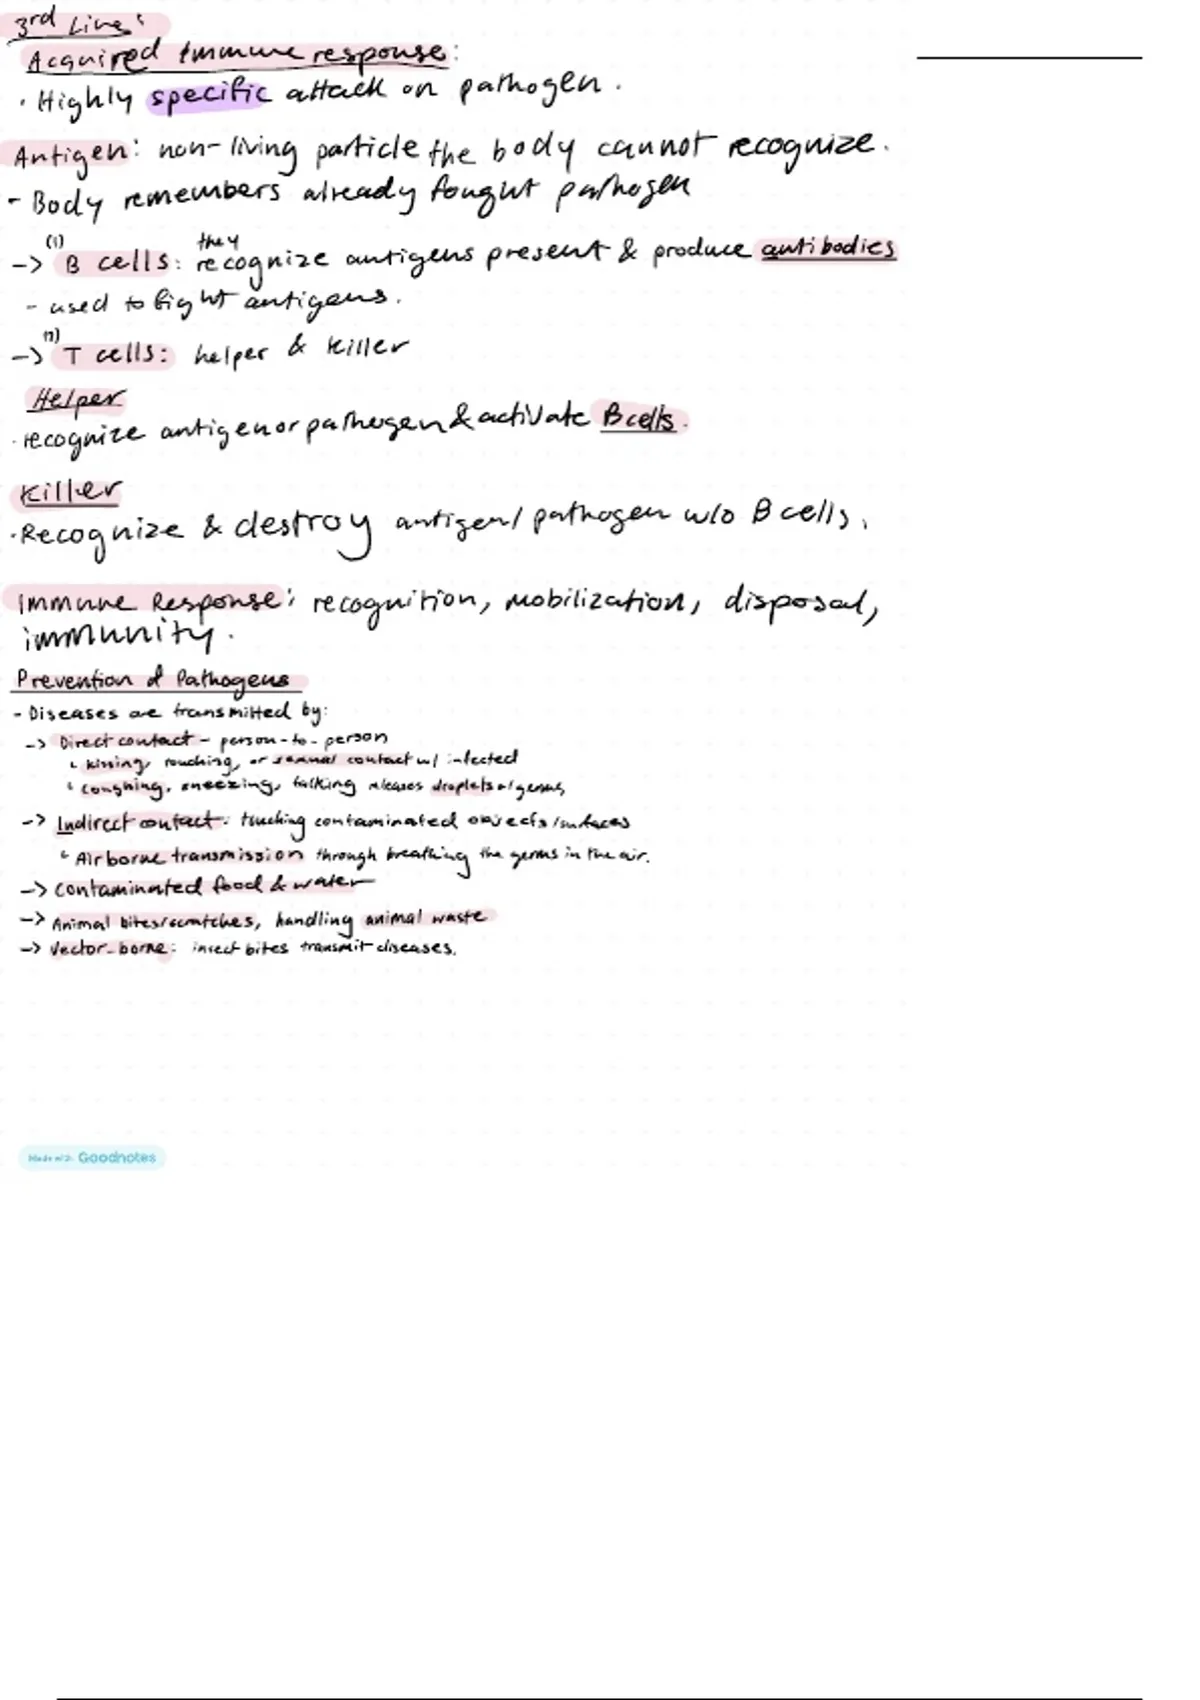 3rd Line:
Acquired Immune response:
• Highly specific attack on pathogen.
Antigen: non-living particle the body cannot recognize.
- Body remembers already fought pathogen
(1) they
-> B cells: recognize antigens present & produce antibodies
- used to fight antigens.
(2)
-> T cells: helper & killer
Helper
• recognize antigen or pathogen & activate B cells.
Killer
• Recognize & destroy antigen/pathogen w/o B cells.
Immune Response: recognition, mobilization, disposal,
immunity.
Prevention of Pathogens
- Diseases are transmitted by:
-> Direct contact - person-to-person
kissing, touching, or sexual contact w/ infected
coughing, sneezing, talking releases droplets w/ germs
-> Indirect contact: touching contaminated objects/surfaces
Airborne transmission through breathing the germs in the air.
-> Contaminated food & water
-> Animal bites/scratches, handling animal waste
-> Vector-borne: insect bites transmit diseases.
Goodnotes